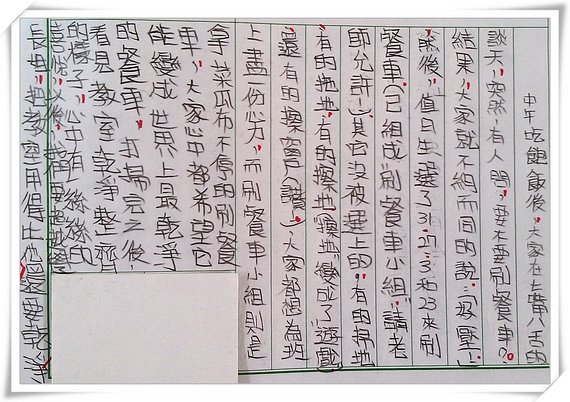 中午吃飽飯後,大家在七嘴八舌的
談天,突然,有人問,要不要刷餐車?
結果,大家就不約而同的說:「好壓!」
然後,值日生選了31、27、3和23來刷
餐車(已組成刷餐車小組)請老
師允許!其它沒被選上的,有的掃地
有的拖地,有的擦地(擦地變成了遊戲)
還有的擦窗(讚!),大家都想為班
上盡一份心力,而刷餐車小組則是
拿菜瓜布不停的刷餐
車,大家心中都希望它
能變成世界上最乾淨
的餐車,打掃完之後,
看見教室乾淨整齊
的樣子,心中有一絲絲的
喜悅,之後,
長也把教室用得比還要乾淨